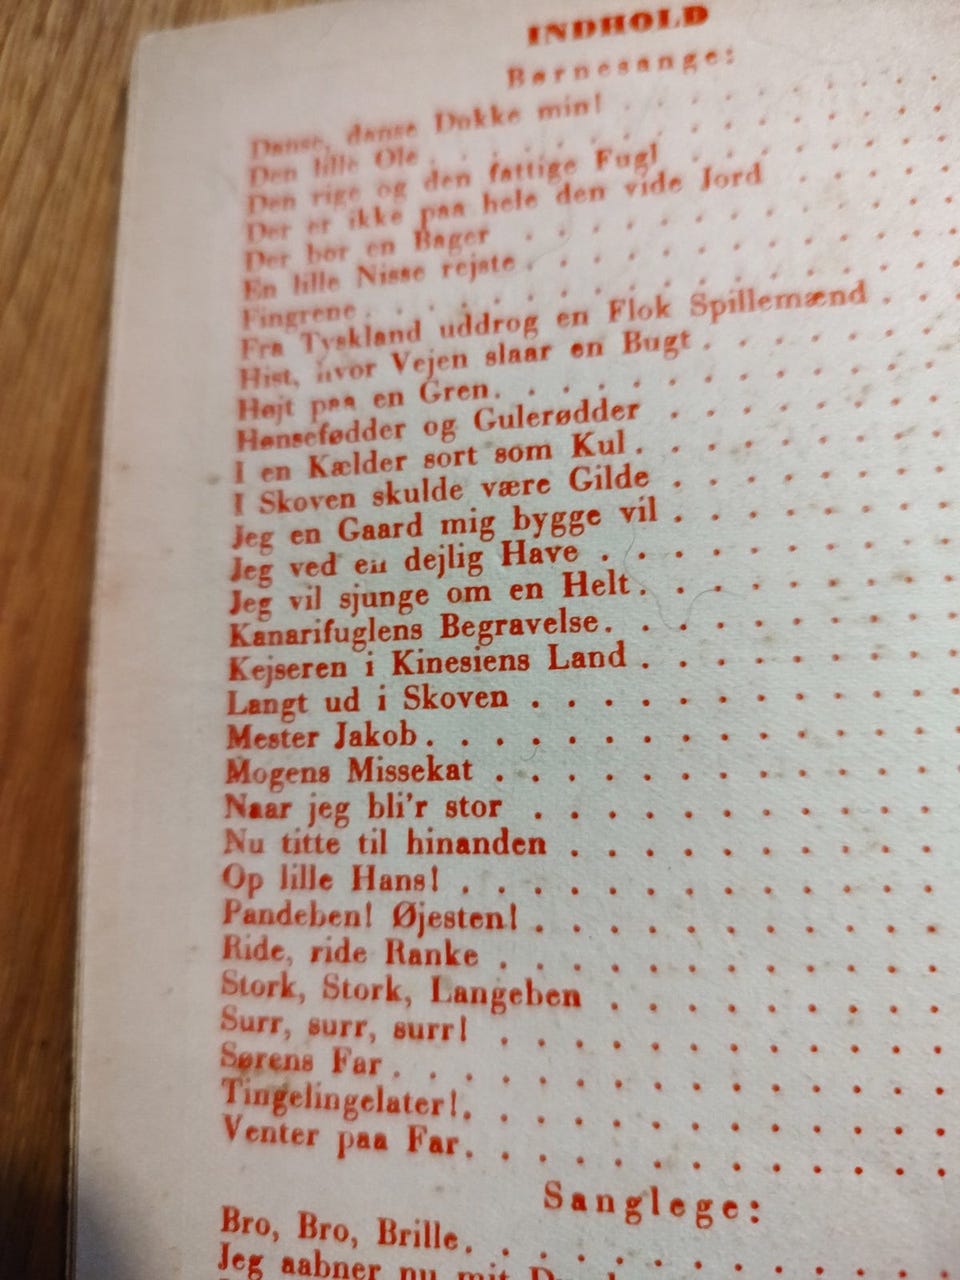 INDHOLD
Børnesange:
Danse, danse Dukke min!
Den lille Ole
Den rige og den fattige Fugl
Der er ikke paa hele den vide Jord
Der bor en Bager
En lille Nisse rejste
Fingrene
Fra Tyskland uddrog en Flok Spillemænd
Hist, hvor Vejen slaar en Bugt
Højt paa en Gren
Hønsefødder og Gulerødder
I en Kælder sort som Kul
I Skoven skulde være Gilde
Jeg en Gaard mig bygge vil
Jeg ved en dejlig Have
Jeg vil sjunge om en Helt
Kanarifuglens Begravelse
Kejseren i Kinesiens Land
Langt ud i Skoven
Mester Jakob
Mogens Missekat
Naar jeg bli'r stor
Nu titte til hinanden
Op lille Hans!
Pandeben! Øjesten!
Ride, ride Ranke
Stork, Stork, Langeben
Surr, surr, surr!
Sørens Far
Tingelingelater!
Venter paa Far
Sanglege:
Bro, Bro, Brille
Jeg aabner nu mit